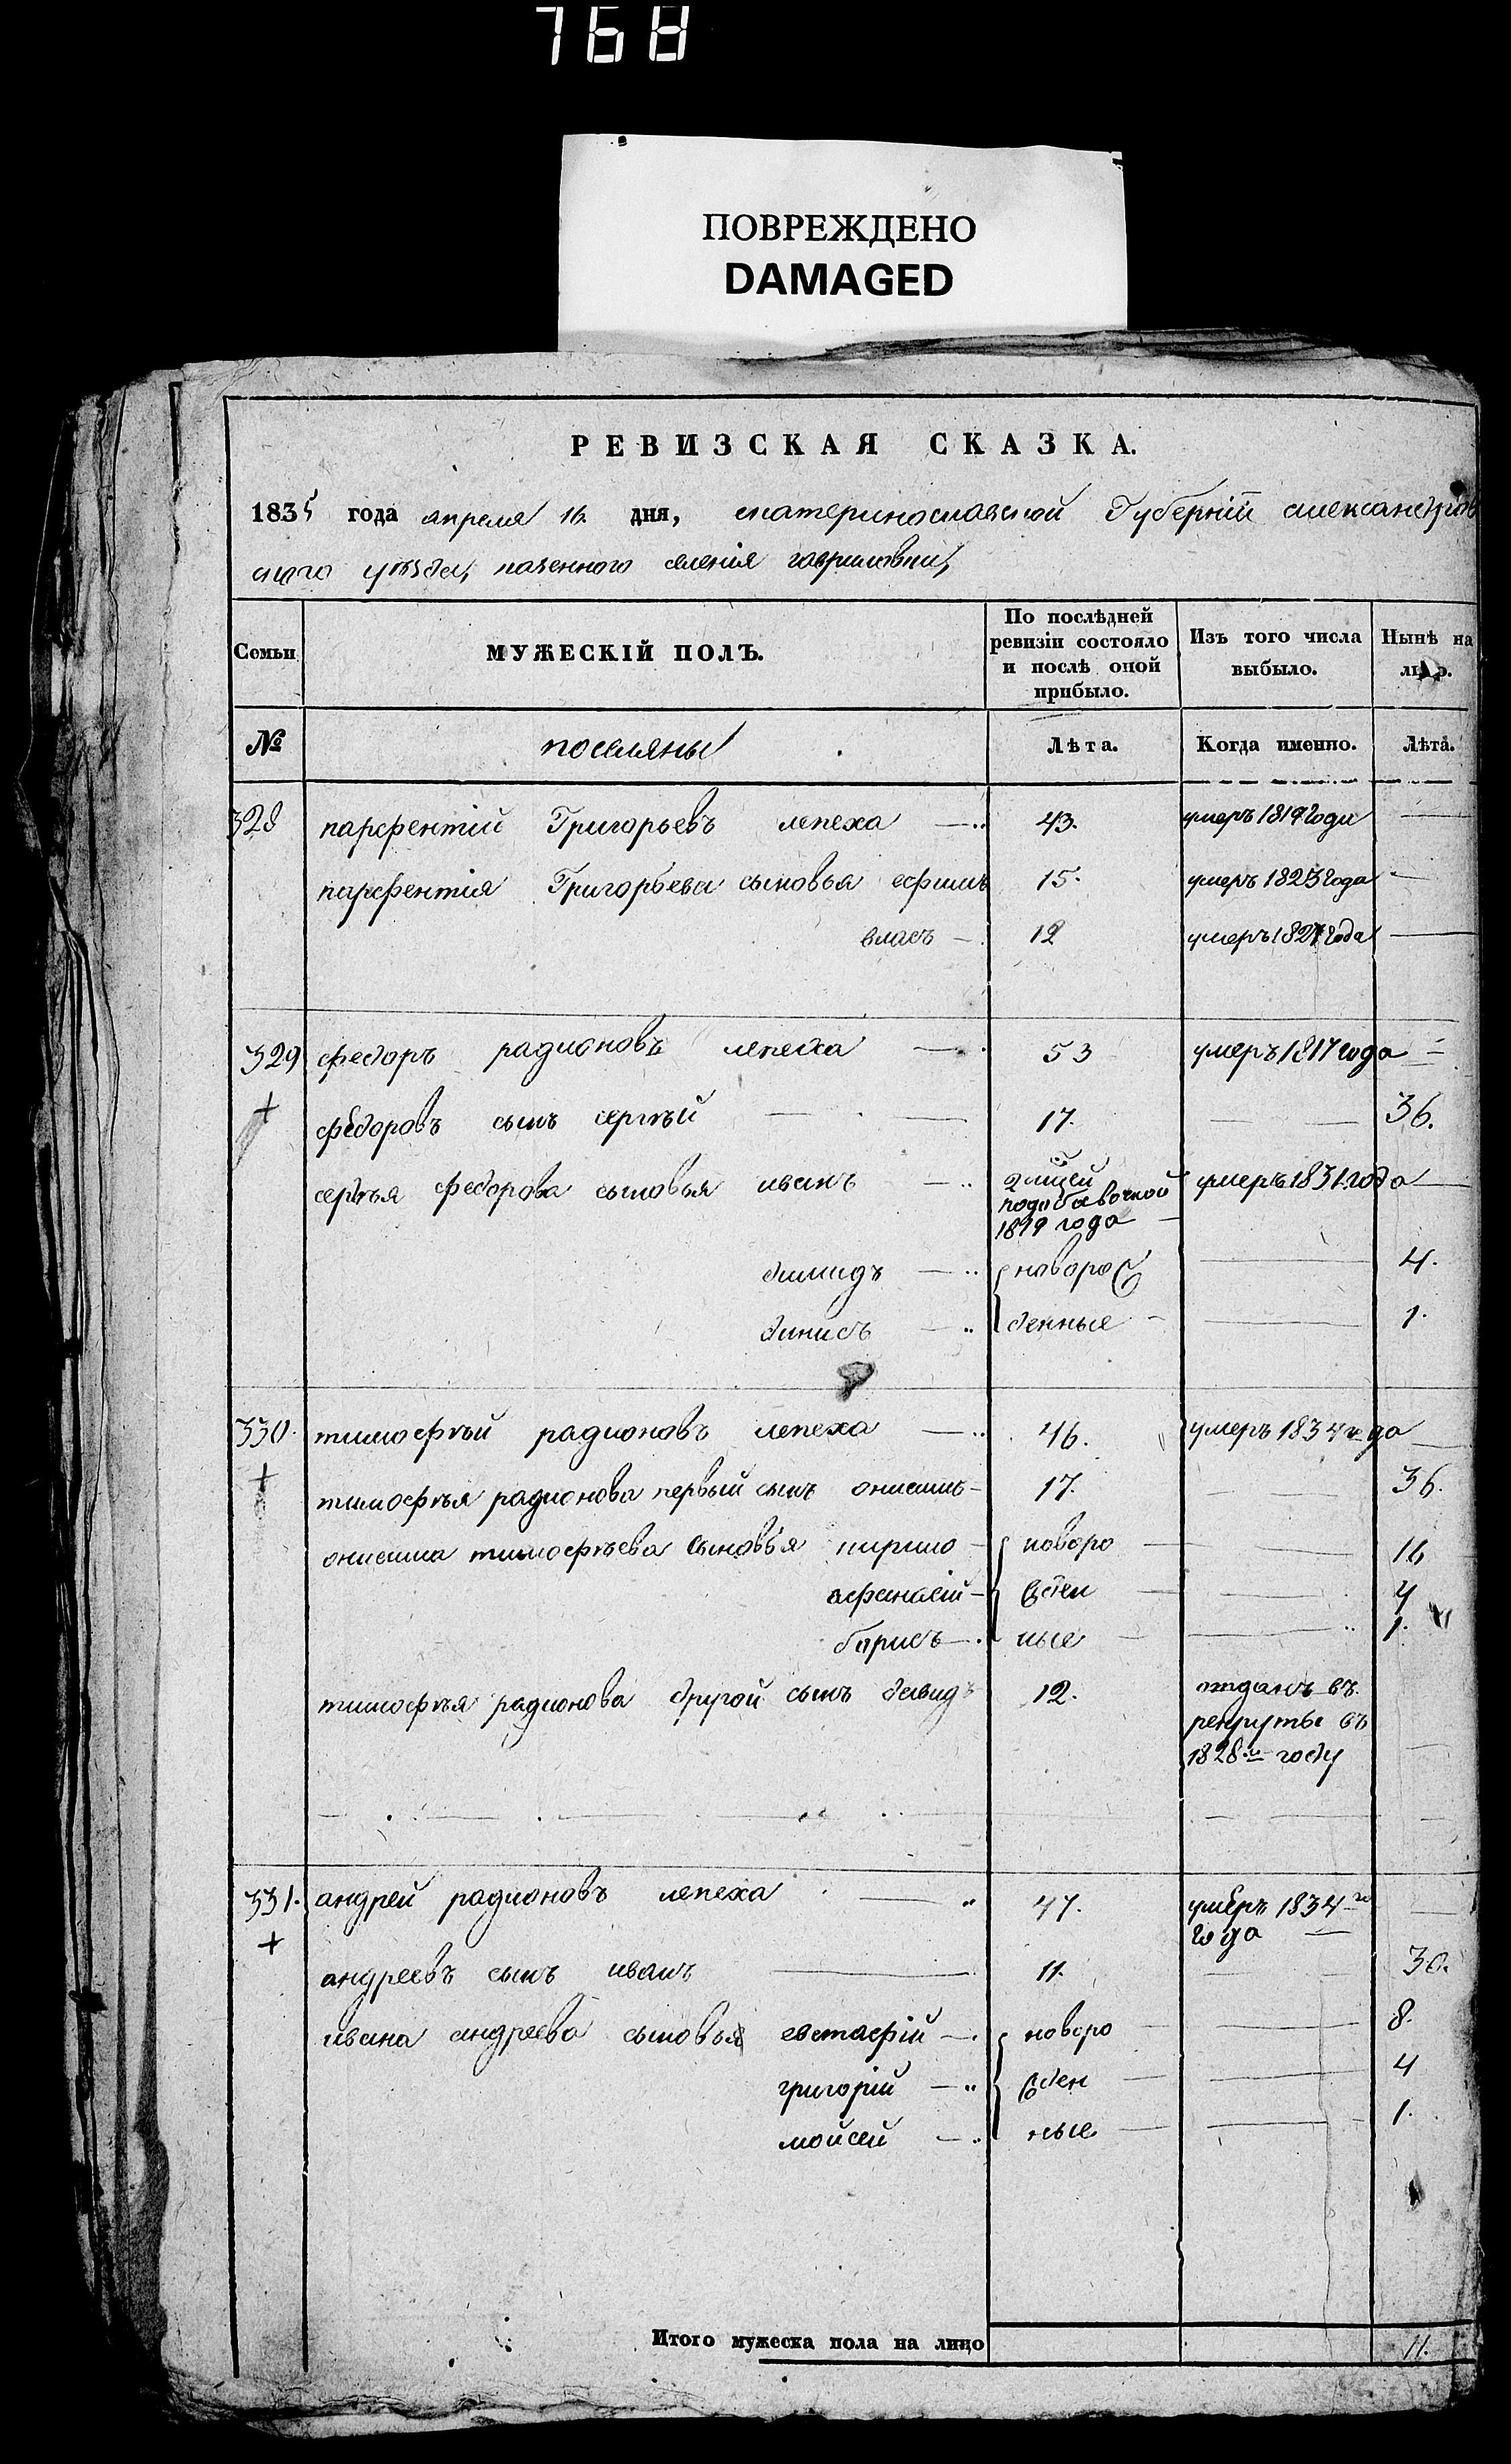 768
ПОВРЕЖДЕНО
DAMAGED
РЕВИЗСКАЯ СКАЗКА.
1835 года апреля 16 дня, екатеринославской Губерніи александров
ского уѣзда, казенного селенія гавриловки,
Семьи МУЖЕСКІЙ ПОЛЪ. По послѣдней ревизіи состояло и послѣ оной прибыло. Изъ того числа выбыло. Нынѣ на лицо.
№ поселяны Лѣта. Когда именно. Лѣта.
328 парфентій Григорьевъ лепеха 43. умеръ 1819 года
парфентія Григорьева сыновья ефимъ 15. умеръ 1825 года
власъ 12 умеръ 1827 года
329 федоръ радионовъ лепеха 53 умеръ 1817 года
федоровъ сынъ сергѣй 17. 36.
сергѣя федорова сыновья иванъ умеръ 1831 года
подобавочной
1819 года
димидъ новорож 4.
динисъ денные 1.
330. тимофѣй радионовъ лепеха 46. умеръ 1834 года
тимофѣя радионова первый сынъ онисимъ 17. 36.
онисима тимофѣева сыновья кирило новоро 16
афанасій жден 4
барисъ ные 1.
тимофѣя радионова другой сынъ давидъ 12. отданъ въ
рекруты въ
1828м году
331. андрей радионовъ лепеха 47. умеръ 1834го
года
андреевъ сынъ иванъ 11. 30.
ивана андреева сыновья евстафій новоро 8.
григорій жден 4
мойсей ные 1.
Итого мужеска пола на лицо 11.